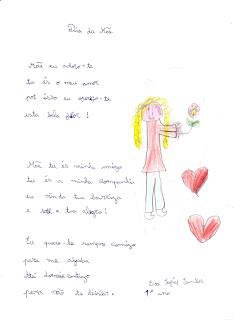 Dia da Mãe
Mãe eu adoro-te
tu és o meu amor
por isso eu ofereço-te
esta bela flor !
Mãe tu és minha amiga
tu és a minha companhia
eu vim da tua barriga
e sou a tua alegria!
Eu quero-te sempre comigo
para me ajudar
Até dormir contigo
para não te deixar.
Eva Santos
1º ano